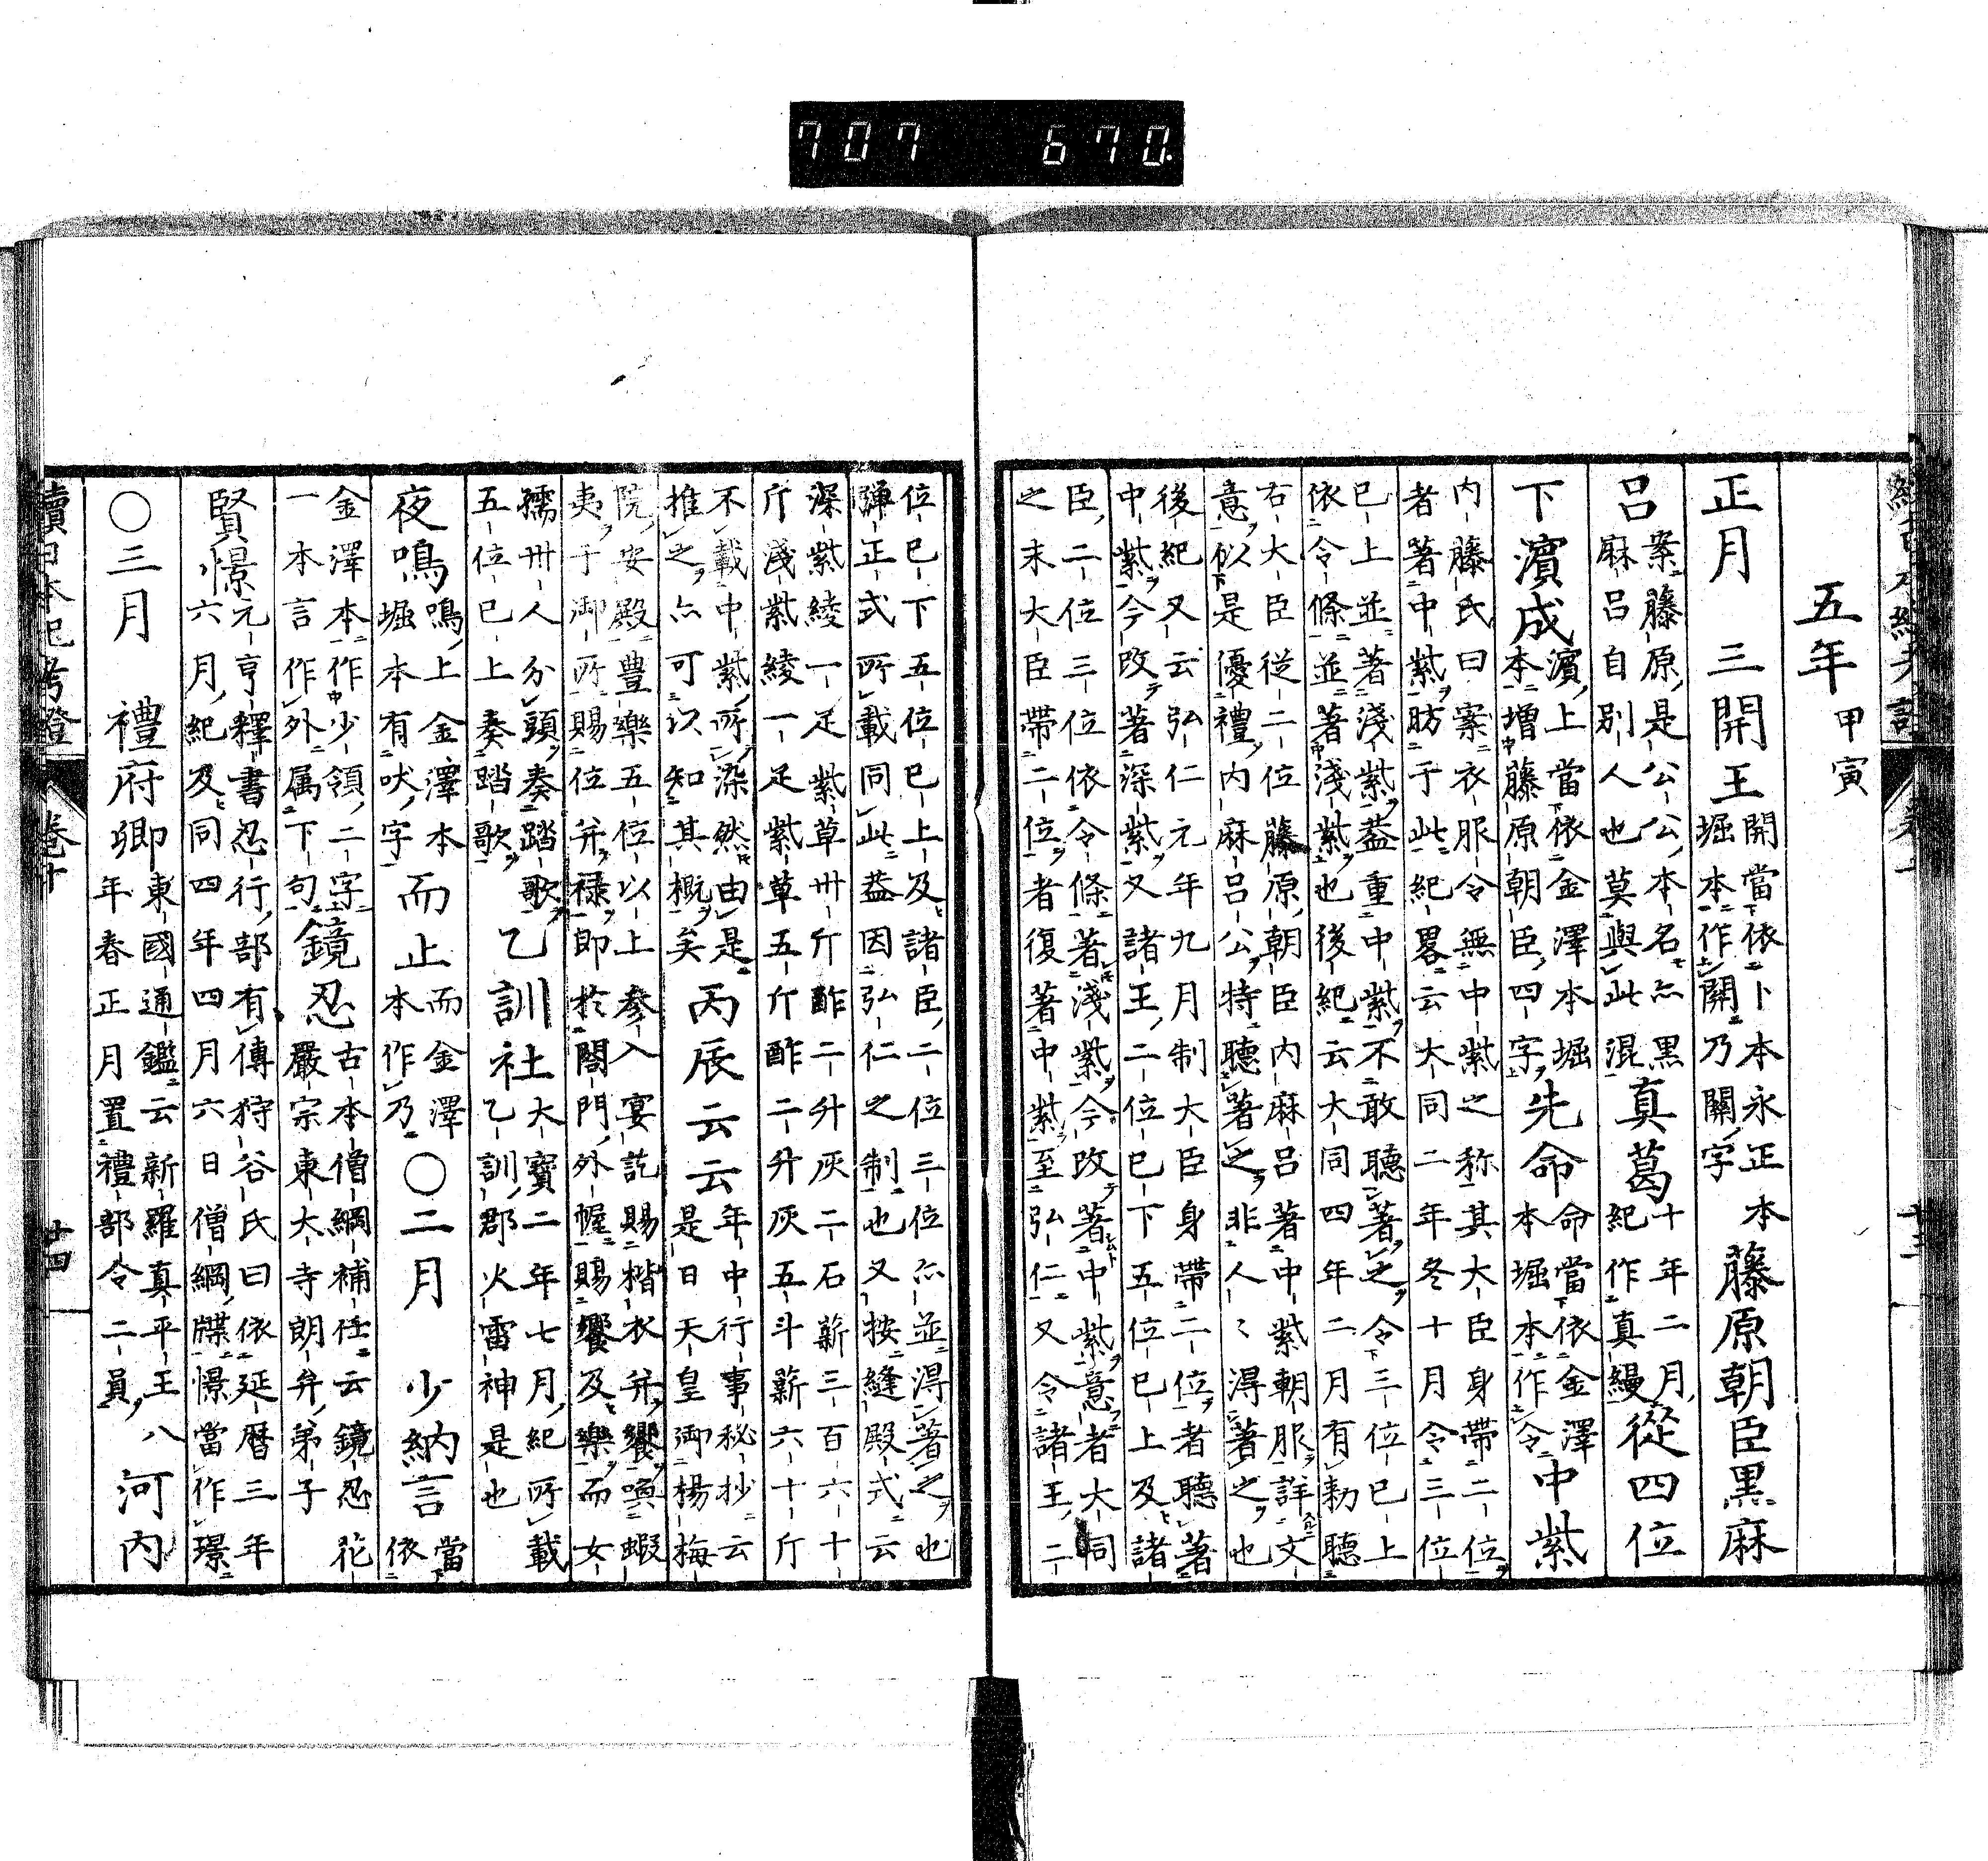 707 670.
五年 甲寅
正月 三開王 開當依卜本永正本
堀本作關乃關字 藤原朝臣黑麻
呂 案藤原是公公本名亦黑
麻呂自別人也莫與此混 真葛 十年二月
紀作真縵 從四位
下濱成 濱上當依金澤本堀
本增藤原朝臣四字 先命 命當依金澤
本堀本作令 中紫
内藤氏曰案衣服令無中紫之称其大臣身帶二位
者著中紫昉于此紀畧云大同二年冬十月令三位
已上並著淺紫蓋重中紫不敢聽著之令三位已上
依令條並著淺紫也後紀云大同四年二月有勅聽
右大臣從二位藤原朝臣内麻呂著中紫朝服詳文
意似是優禮内麻呂公特聽著之非人〻得著之也
後紀又云弘仁元年九月制大臣身帶二位者聽著
中紫今改著深紫又諸王二位已下五位已上及諸
臣二位三位依令條著淺紫今改著中紫意者大同
之末大臣帶二位者復著中紫至弘仁又令諸王二
位已下五位已上及諸臣二位三位亦並得著之也
彈正式所載同此蓋因弘仁之制也又按縫殿式云
深紫綾一疋紫草卅斤酢二升灰二石薪三百六十
斤淺紫綾一疋紫草五斤酢二升灰五斗薪六十斤
不載中紫所染然由是
推之亦可以知其概矣 丙辰云云 年中行事秘抄云
是日天皇御楊梅
院安殿豊樂五位以上參入宴訖賜楷衣并饗喚蝦
夷于御所賜位并禄即於閤門外幄賜饗及樂而女
孺卌人分頭奏踏歌
五位已上奏踏歌 乙訓社 大寶二年七月紀所載
乙訓郡火雷神是也
夜鳴 鳴上金澤本
堀本有吠字 而止 而金澤
本作乃 ○二月 少納言 當
依
金澤本作少領二字
一本言作外属下句 鏡忍 古本僧綱補任云鏡忍花
嚴宗東大寺朗弁弟子
賢憬 元亨釋書忍行部有傳狩谷氏曰依延暦三年
六月紀及同四年四月六日僧綱牒憬當作璟
○三月 禮府卿 東國通鑑云新羅真平王八
年春正月置禮部令二員 河内
續日本紀考證 卷十 廿四